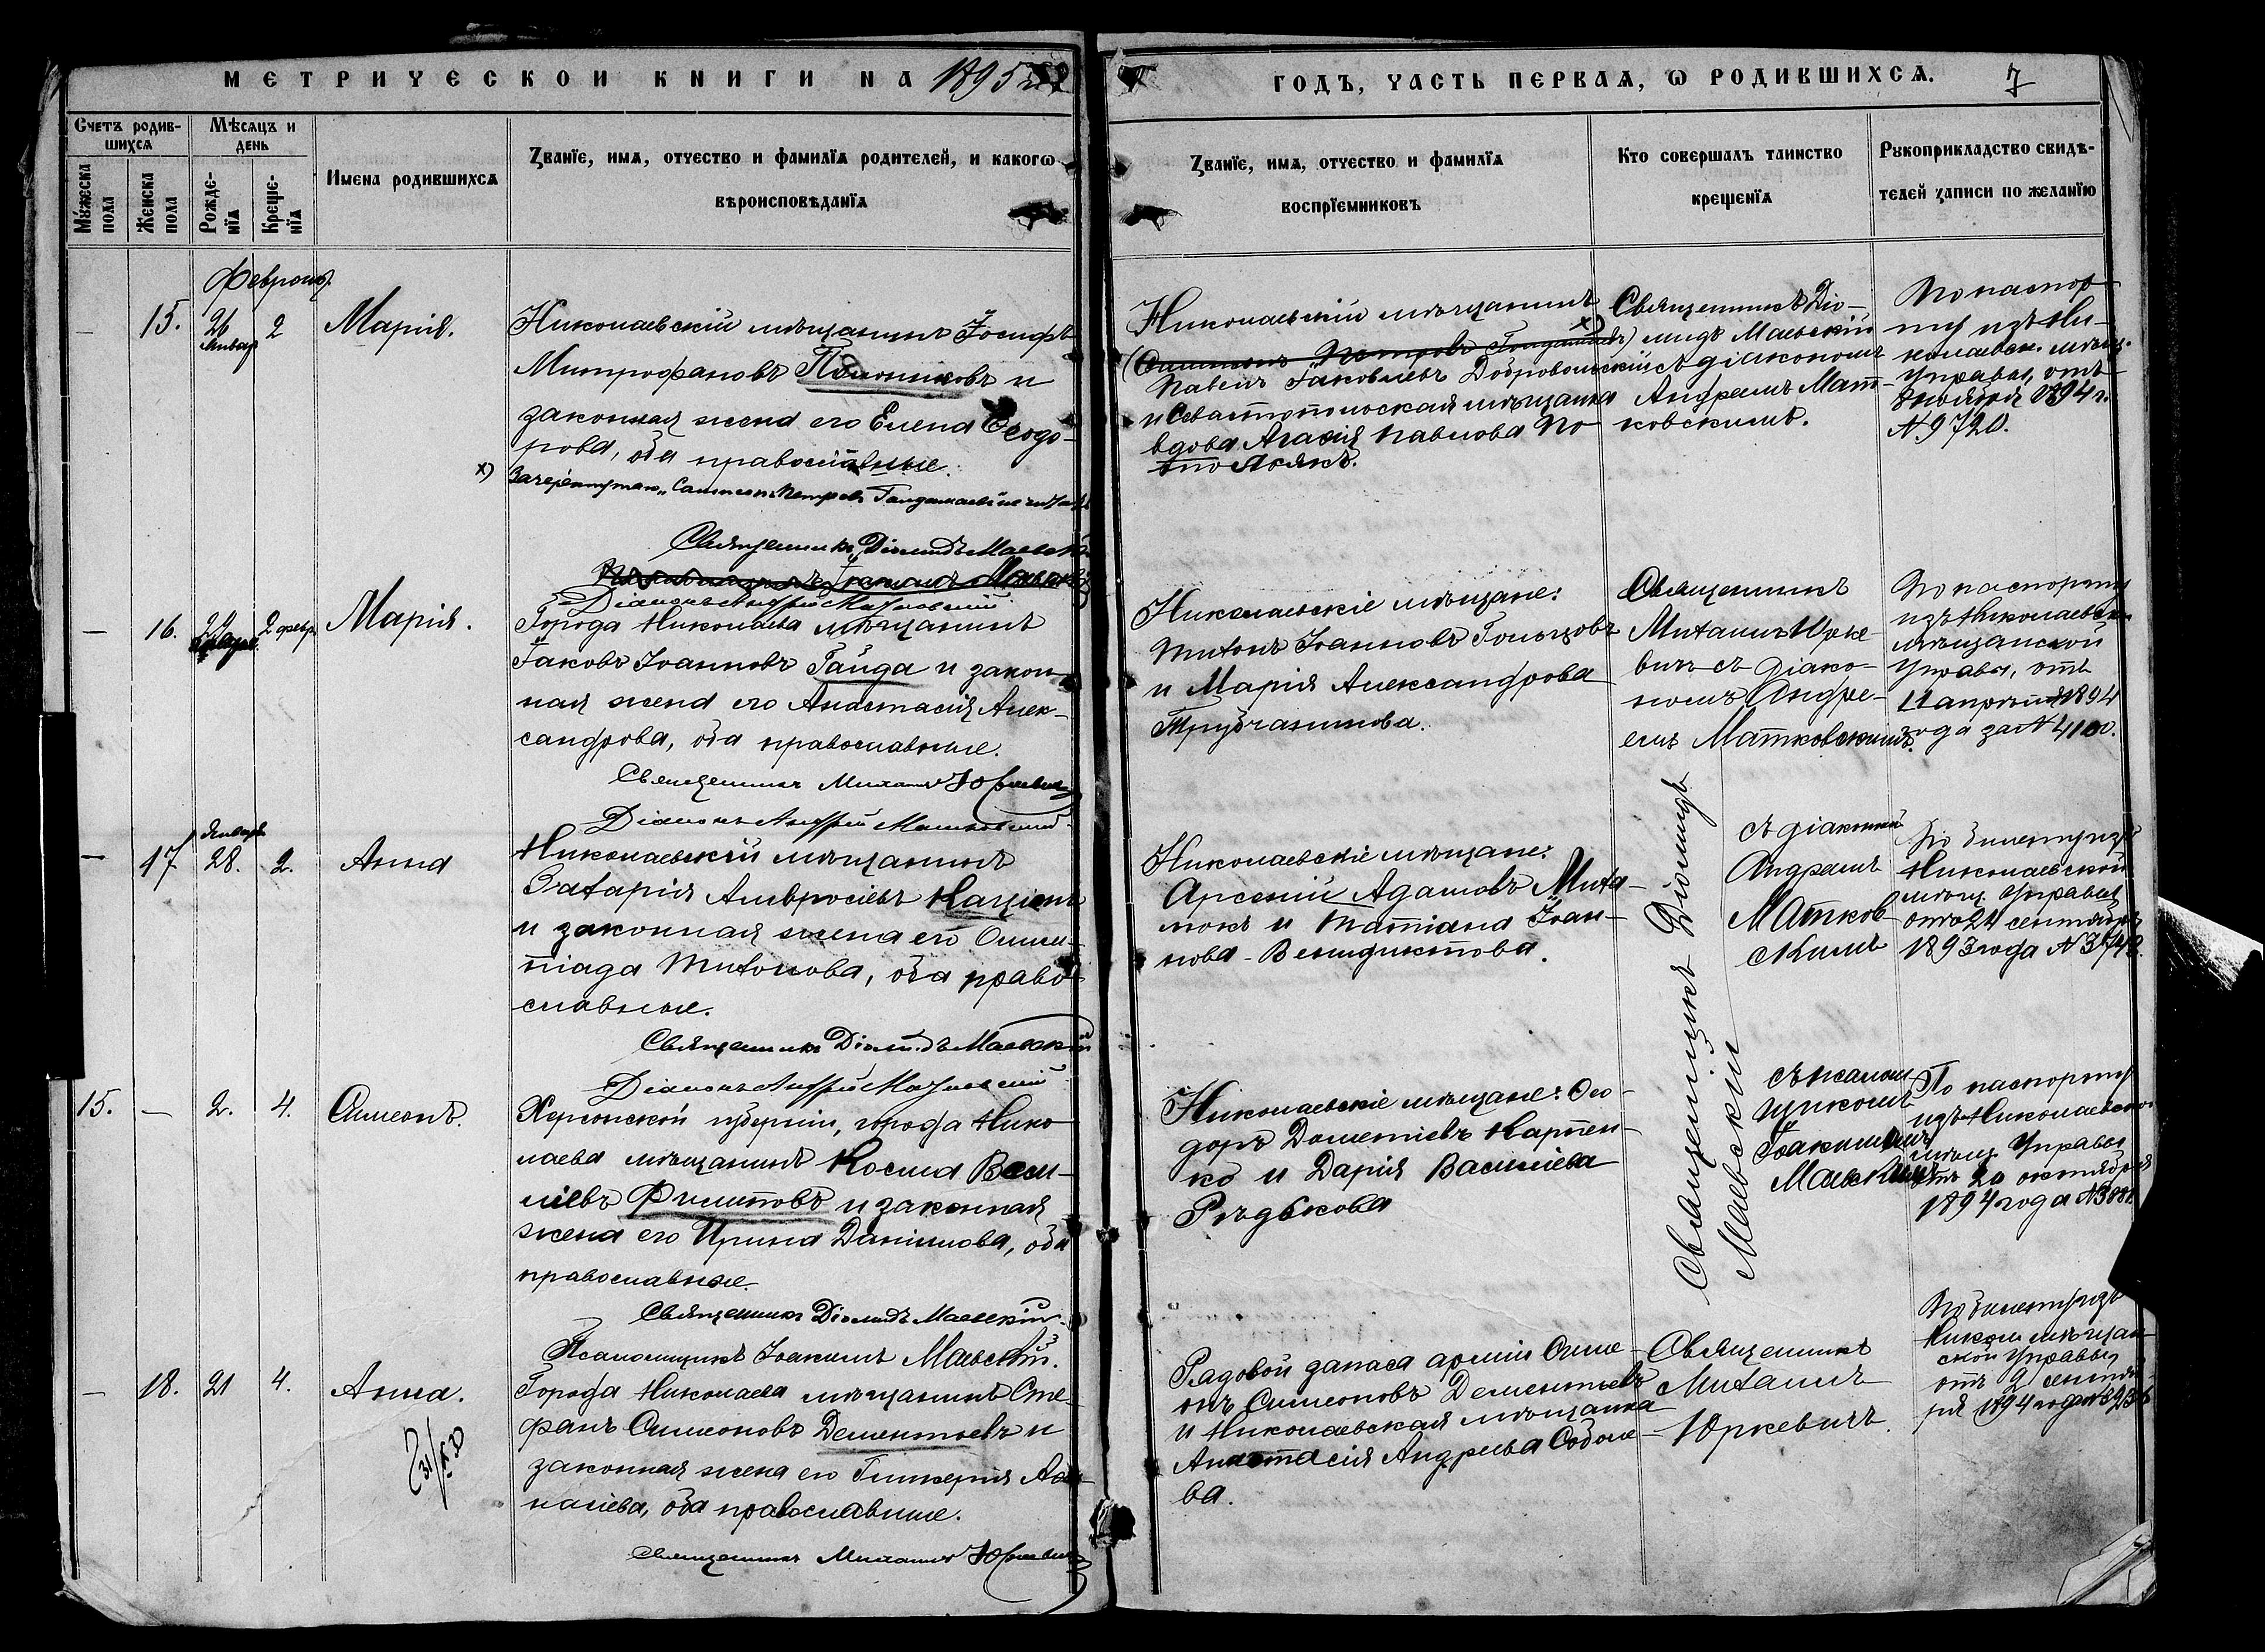 МЕТРИЧЕСКОЙ КНИГИ НА 1895
ГОДЪ, ЧАСТЬ ПЕРВАЯ, Ѡ РОДИВШИХСЯ. 7
Счетъ родив-
шихся
Мѣсяцъ и
день
Мужеска
пола
Женска
пола
Рожде-
нія
Креще-
нія
Имена родившихся
Званїе, имя, отчество и фамилїя родителей, и какогѡ
вѣроисповѣданїя
Званїе, имя, отчество и фамилїя
воспрїемниковъ
Кто совершалъ таинство
крещенїя
Рукоприкладство свидѣ-
телей записи по желанїю
— 15. 26 2 Марія.
Январ
Николаевскій мѣщанинъ Іосифъ
Митрофановъ и
законная жена его Елена Ѳеодо-
рова, оба православные.
х) Зачеркнутаго „Симеонъ Петровъ
Священникъ Діомидъ Маевскій
Діаконъ Андрей Матковскій
Николаевскій мѣщанинъ
(Симеонъ Петровъ
Павелъ Іаковлевъ Добровольскій
и Севастопольская мѣщанка
вдова Агафія Павлова
Священникъ Діо-
мидъ Маевскій
съ діакономъ
Андреемъ Мат-
ковскимъ.
По паспор-
ту изъ Ни-
колаевск. мѣщ.
Управы, отъ
1894 г.
№ 9720.
— 16. 29 2 февр. Марія.
Города Николаева мѣщанинъ
Іаковъ Іоанновъ Гайда и закон-
ная жена его Анастасія Алек-
сандрова, оба православные.
Священникъ Михаилъ Юркевичъ
Діаконъ Андрей Матковскій
Николаевскіе мѣщане:
Титъ Іоанновъ
и Марія Александрова
Трубчанинова.
Священникъ
Михаилъ Юрке-
вичъ съ діако-
номъ Андре-
емъ Матковскимъ.
По паспорту
изъ Николаевской
мѣщанской
Управы, отъ
11 апрѣля 1894
года за № 4100.
Январь
— 17 28. 2. Анна
Николаевскій мѣщанинъ
Захарія Амвросіевъ
и законная жена его Олим-
піада Титова, оба право-
славные.
Священникъ Діомидъ Маевскій
Діаконъ Андрей Матковскій
Николаевскіе мѣщане:
Арсеній Адамовъ Миха-
люкъ и Татіана Іоан-
нова Венидиктова.
Священникъ Діомидъ
Маевскій
съ діакономъ
Андреемъ
Матков-
скимъ
По билету изъ
Николаевской
мѣщ. Управы
отъ 24 сентября
1893 года
15. — 2. 4. Симеонъ.
Херсонской губерніи, города Нико-
лаева мѣщанинъ Косма Васи-
ліевъ Филиповъ и законная
жена его Ирина Даніилова, оба
православные.
Священникъ Діомидъ Маевскій.
Псаломщикъ Іоакимъ Маевскій.
Николаевскіе мѣщане: Ѳео-
доръ Дометіевъ Карпен-
ко и Дарія Василіева
Рѣдькова
съ псалом-
щикомъ
Іоакимомъ
Маевскимъ
По паспорту
изъ Николаевской
мѣщ. Управы
отъ 20 октября
1894 года
— 18. 21 4. Анна.
Города Николаева мѣщанинъ Сте-
фанъ Симеоновъ Дементьевъ и
законная жена его Гликерія Аѳа-
насіева, оба православные.
Священникъ Михаилъ Юркевичъ
Рядовой запаса арміи Симе-
онъ Симеоновъ Дементьевъ
и Николаевская мѣщанка
Анастасія Андреева Соболе-
ва.
Священникъ
Михаилъ
Юркевичъ.
По билету изъ
Никол. мѣщан-
ской Управы,
отъ 9 сентяб-
ря 1894 года